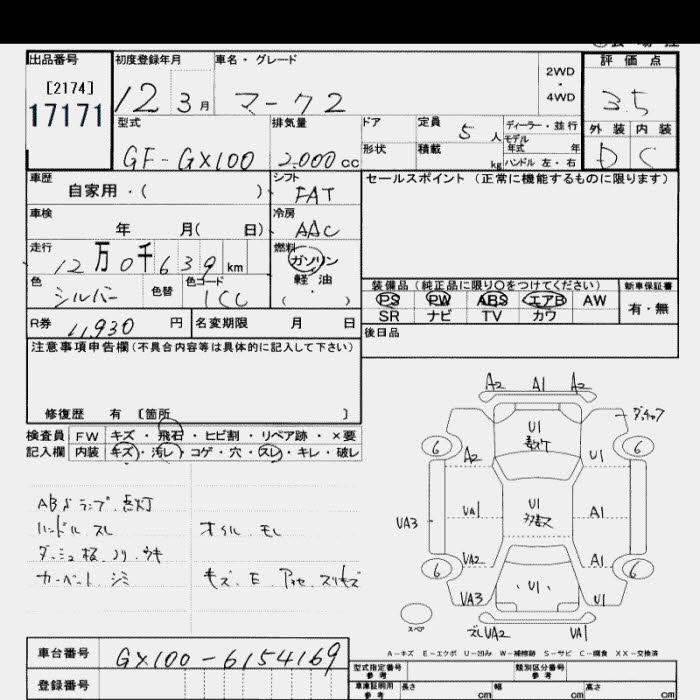 出品番号 初度登録年月 車名・グレード 2WD ・ 4WD 評価点
[2174]
17171 12 3月 マーク2 3.5
型式 排気量 ドア 定員 5人 ディーラー・並行 外装 内装
モデル年式 年
GF-GX100 2,000cc 形状 積載 kg ハンドル 左・右 D C
車歴 シフト セールスポイント(正常に機能するものに限ります)
自家用・( ) FAT
車検 冷房
年 月( 日) AAC
走行 燃料
12万0千639km ガソリン
色 色替 色コード 軽油 装備品(純正品に限り○をつけてください) 新車保証書
シルバー 1CC ( ・ ) PS PW ABS エアB AW 有・無
SR ナビ TV カワ
R券 11,930円 名変期限 月 日 後日品
注意事項申告欄(不具合内容等は具体的に記入して下さい)
修復歴 有 〔箇所 〕
検査員 FW キズ・飛石・ヒビ割・リペア跡・×要
記入欄 内装 キズ・汚レ・コゲ・穴・スレ・キレ・破レ
ABSランプ 点灯
ハンドル スレ オイル モレ
ダッシュ板 ノリ ウキ
カーペット シミ
A2 A1 A2
U1
6 A2 U1 6
UA3 UA1 U1 A1
UA2 A1
6 U1 6
UA3 U1
スペア
UA2 UA1
A-キズ E-エクボ U-凹み W-補修跡 S-サビ C-腐食 XX-交換済
車台番号 GX100-6154169 型式指定番号 参考 類別区分番号 参考
登録番号 車庫証明用 参考 長さ cm 幅 cm 高さ cm